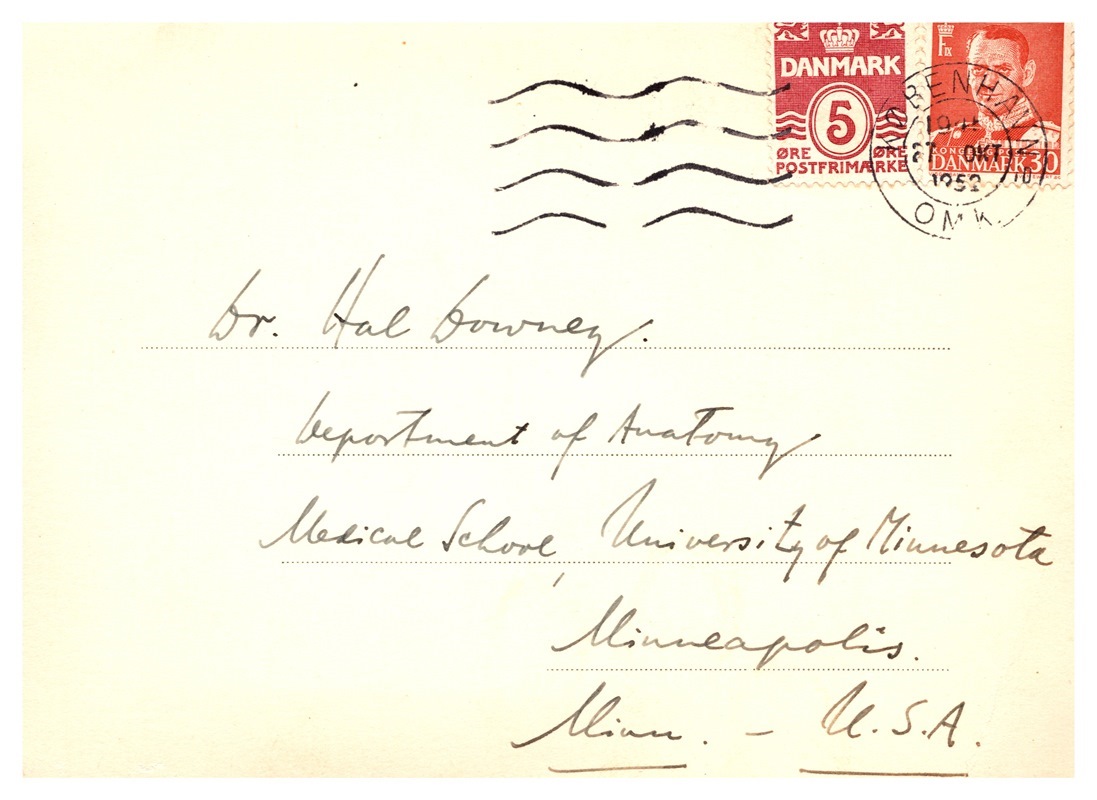 DANMARK
5
ØRE ØRE
POSTFRIMÆRKE
DANMARK 30
KØBENHAVN
27 OKT
OMK.
Dr. Hal Downey.
Department of Anatomy
Medical School, University of Minnesota
Minneapolis.
Minn. - U.S.A.